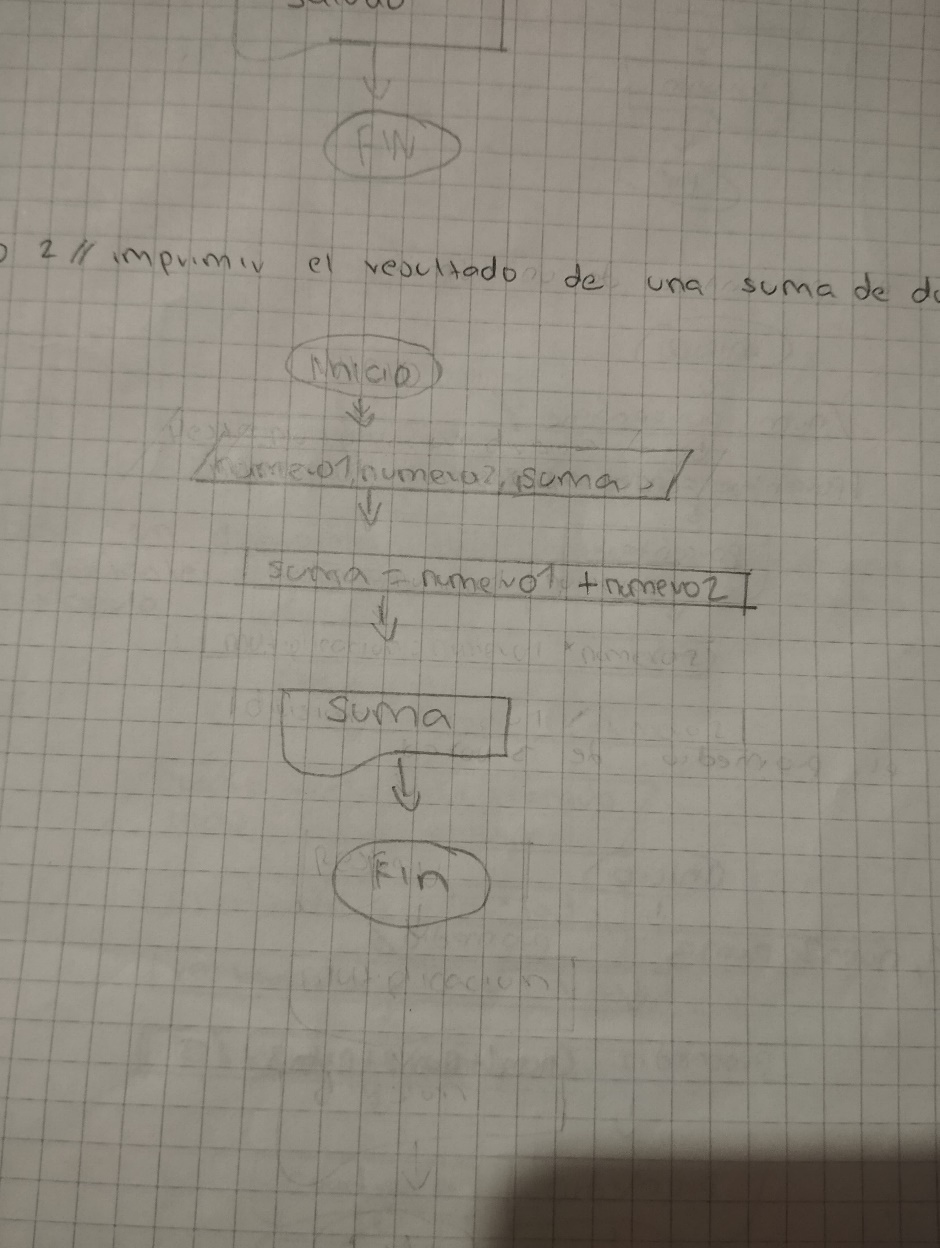 FIN
2 // imprimir el resultado de una suma de
Inicio
numero1, numero2, suma,
suma = numero1 + numero2
suma
Fin